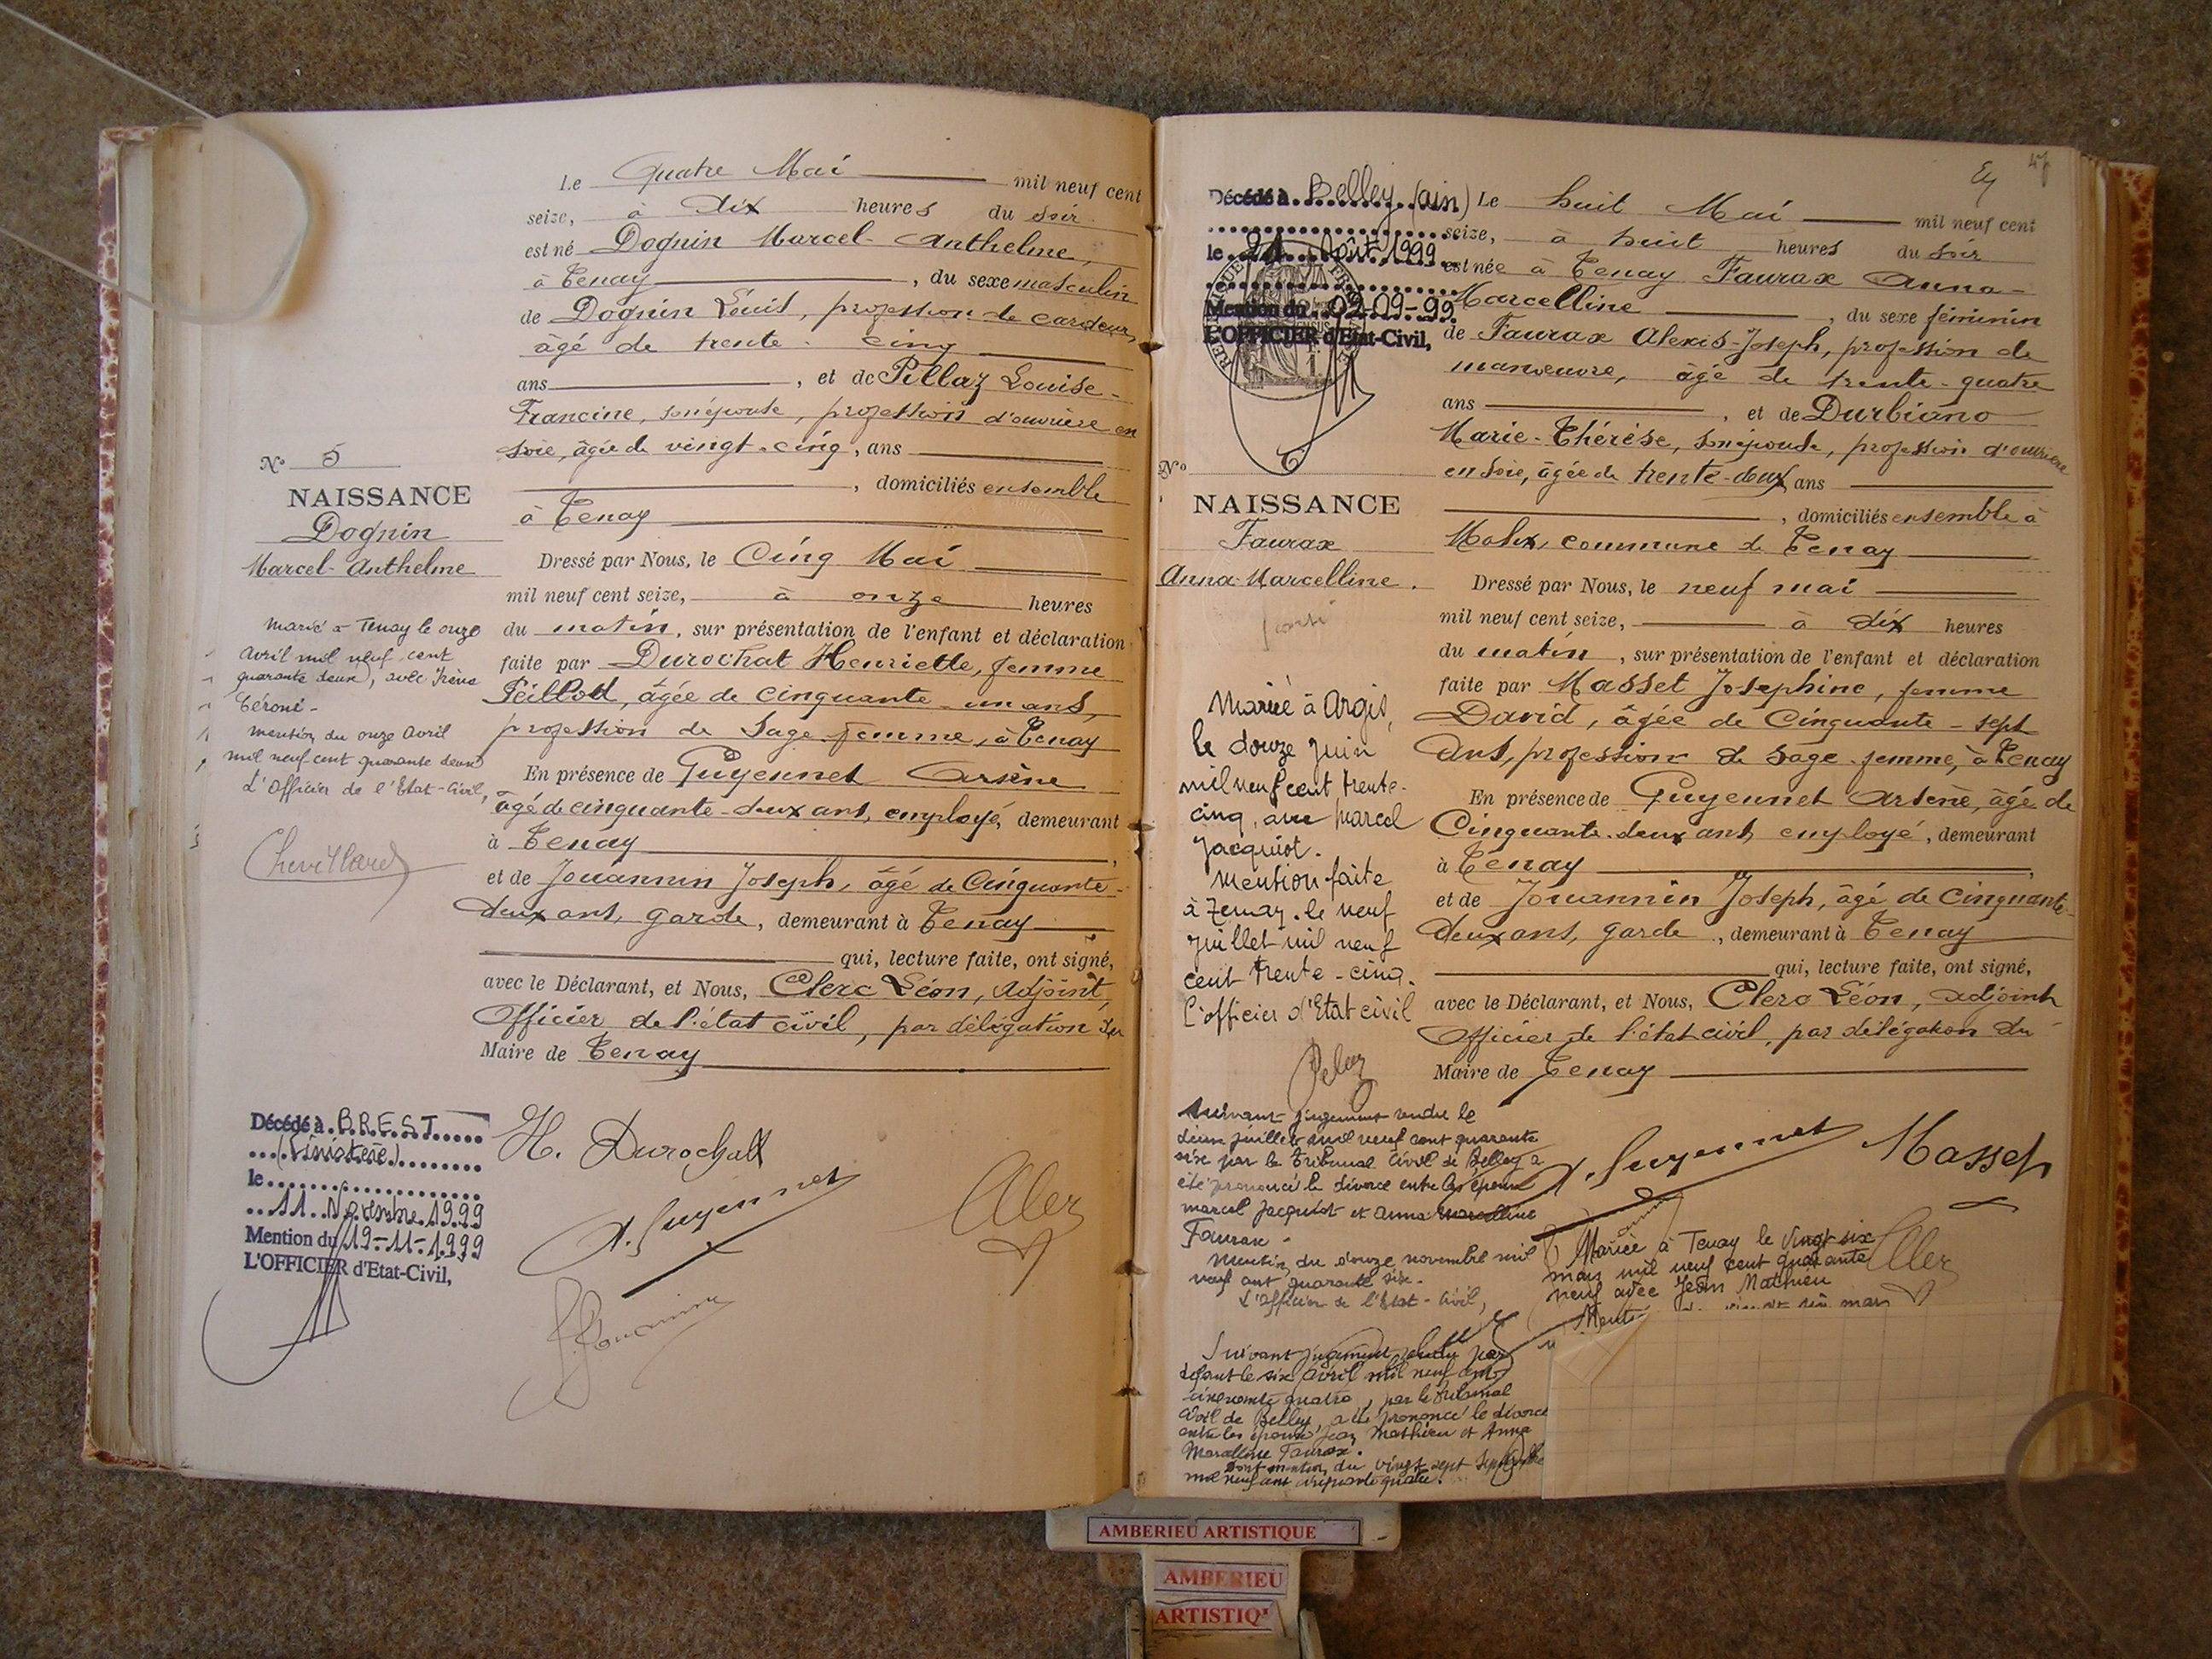 Le Quatre Mai mil neuf cent
seize, à dix heures du soir
est né Doguin Marcel-Anthelme,
à Tenay, du sexe masculin
de Doguin Louis, profession de cardeur,
âgé de trente-cinq
ans, et de Pellaz Louise-
Francine, son épouse, profession d'ouvrière en
soie, âgée de vingt-cinq, ans
, domiciliés ensemble
à Tenay
Dressé par Nous, le Cinq Mai
mil neuf cent seize, à onze heures
du matin, sur présentation de l'enfant et déclaration
faite par Durochat Henriette, femme
Peillod, âgée de cinquante-un ans,
profession de Sage-femme, à Tenay
En présence de Guyennet Arsène
âgé de cinquante-deux ans, employé, demeurant
à Tenay,
et de Jouannin Joseph, âgé de Cinquante-
deux ans, garde, demeurant à Tenay
qui, lecture faite, ont signé,
avec le Déclarant, et Nous, Clerc Léon, adjoint,
Officier de l'état civil, par délégation du
Maire de Tenay
N° 5
NAISSANCE
Doguin
Marcel-Anthelme
Marié à Tenay le onze
avril mil neuf cent
quarante deux, avec Irène
mention du onze Avril
mil neuf cent quarante deux
L'Officier de l'Etat-Civil,
Chevillard
Décédé à BREST
(Finistère)
le
11 Novembre 1999
Mention du 19-11-1999
L'OFFICIER d'Etat-Civil,
H. Durochat
A. Guyennet
J. Jouannin
Clerc
47
Décédé à Belley (ain)
le 21 Août 1999
Mention du 02-09-99
L'OFFICIER d'Etat-Civil,
Le huit Mai mil neuf cent
seize, à huit heures du soir
est née à Tenay Faurax Anna-
Marcelline, du sexe féminin
de Faurax Alexis-Joseph, profession de
manoeuvre, âgé de trente-quatre
ans, et de Durbiano
Marie-Thérèse, son épouse, profession d'ouvrière
en soie, âgée de trente-deux ans
, domiciliés ensemble à
commune de Tenay
Dressé par Nous, le neuf mai
mil neuf cent seize, à dix heures
du matin, sur présentation de l'enfant et déclaration
faite par Masset Josephine, femme
David, âgée de Cinquante-sept
ans, profession de sage-femme, à Tenay
En présence de Guyennet Arsène, âgé de
Cinquante-deux ans, employé, demeurant
à Tenay,
et de Jouannin Joseph, âgé de cinquante-
deux ans, garde, demeurant à Tenay
qui, lecture faite, ont signé,
avec le Déclarant, et Nous, Clerc Léon, adjoint
Officier de l'état civil, par délégation du
Maire de Tenay
N°
NAISSANCE
Faurax
Anna-Marcelline.
Mariée à Argis,
le douze juin
mil neuf cent trente-
cinq, avec Marcel
Jacquiot.
Mention faite
à Tenay, le neuf
juillet mil neuf
cent trente-cinq.
L'officier d'Etat civil
Suivant jugement rendu le
deux juillet mil neuf cent quarante
six par le tribunal civil de Belley a
été prononcé le divorce entre les époux
Marcel Jacquiot et Anna Marcelline
Faurax.
Mention du douze novembre mil
neuf cent quarante six.
L'Officier de l'Etat-Civil,
A. Guyennet
Masset
Clerc
Mariée à Tenay le vingt-six
mars mil neuf cent quarante
neuf avec Jean Mathieu
Suivant jugement rendu par
défaut le six avril mil neuf cent
cinquante quatre, par le tribunal
Civil de Belley, a été prononcé le divorce
entre les époux Jean Mathieu et Anna
Marcelline Faurax.
Dont mention du vingt sept Septembre
mil neuf cent cinquante quatre.
AMBERIEU ARTISTIQUE
AMBERIEU
ARTISTIQ